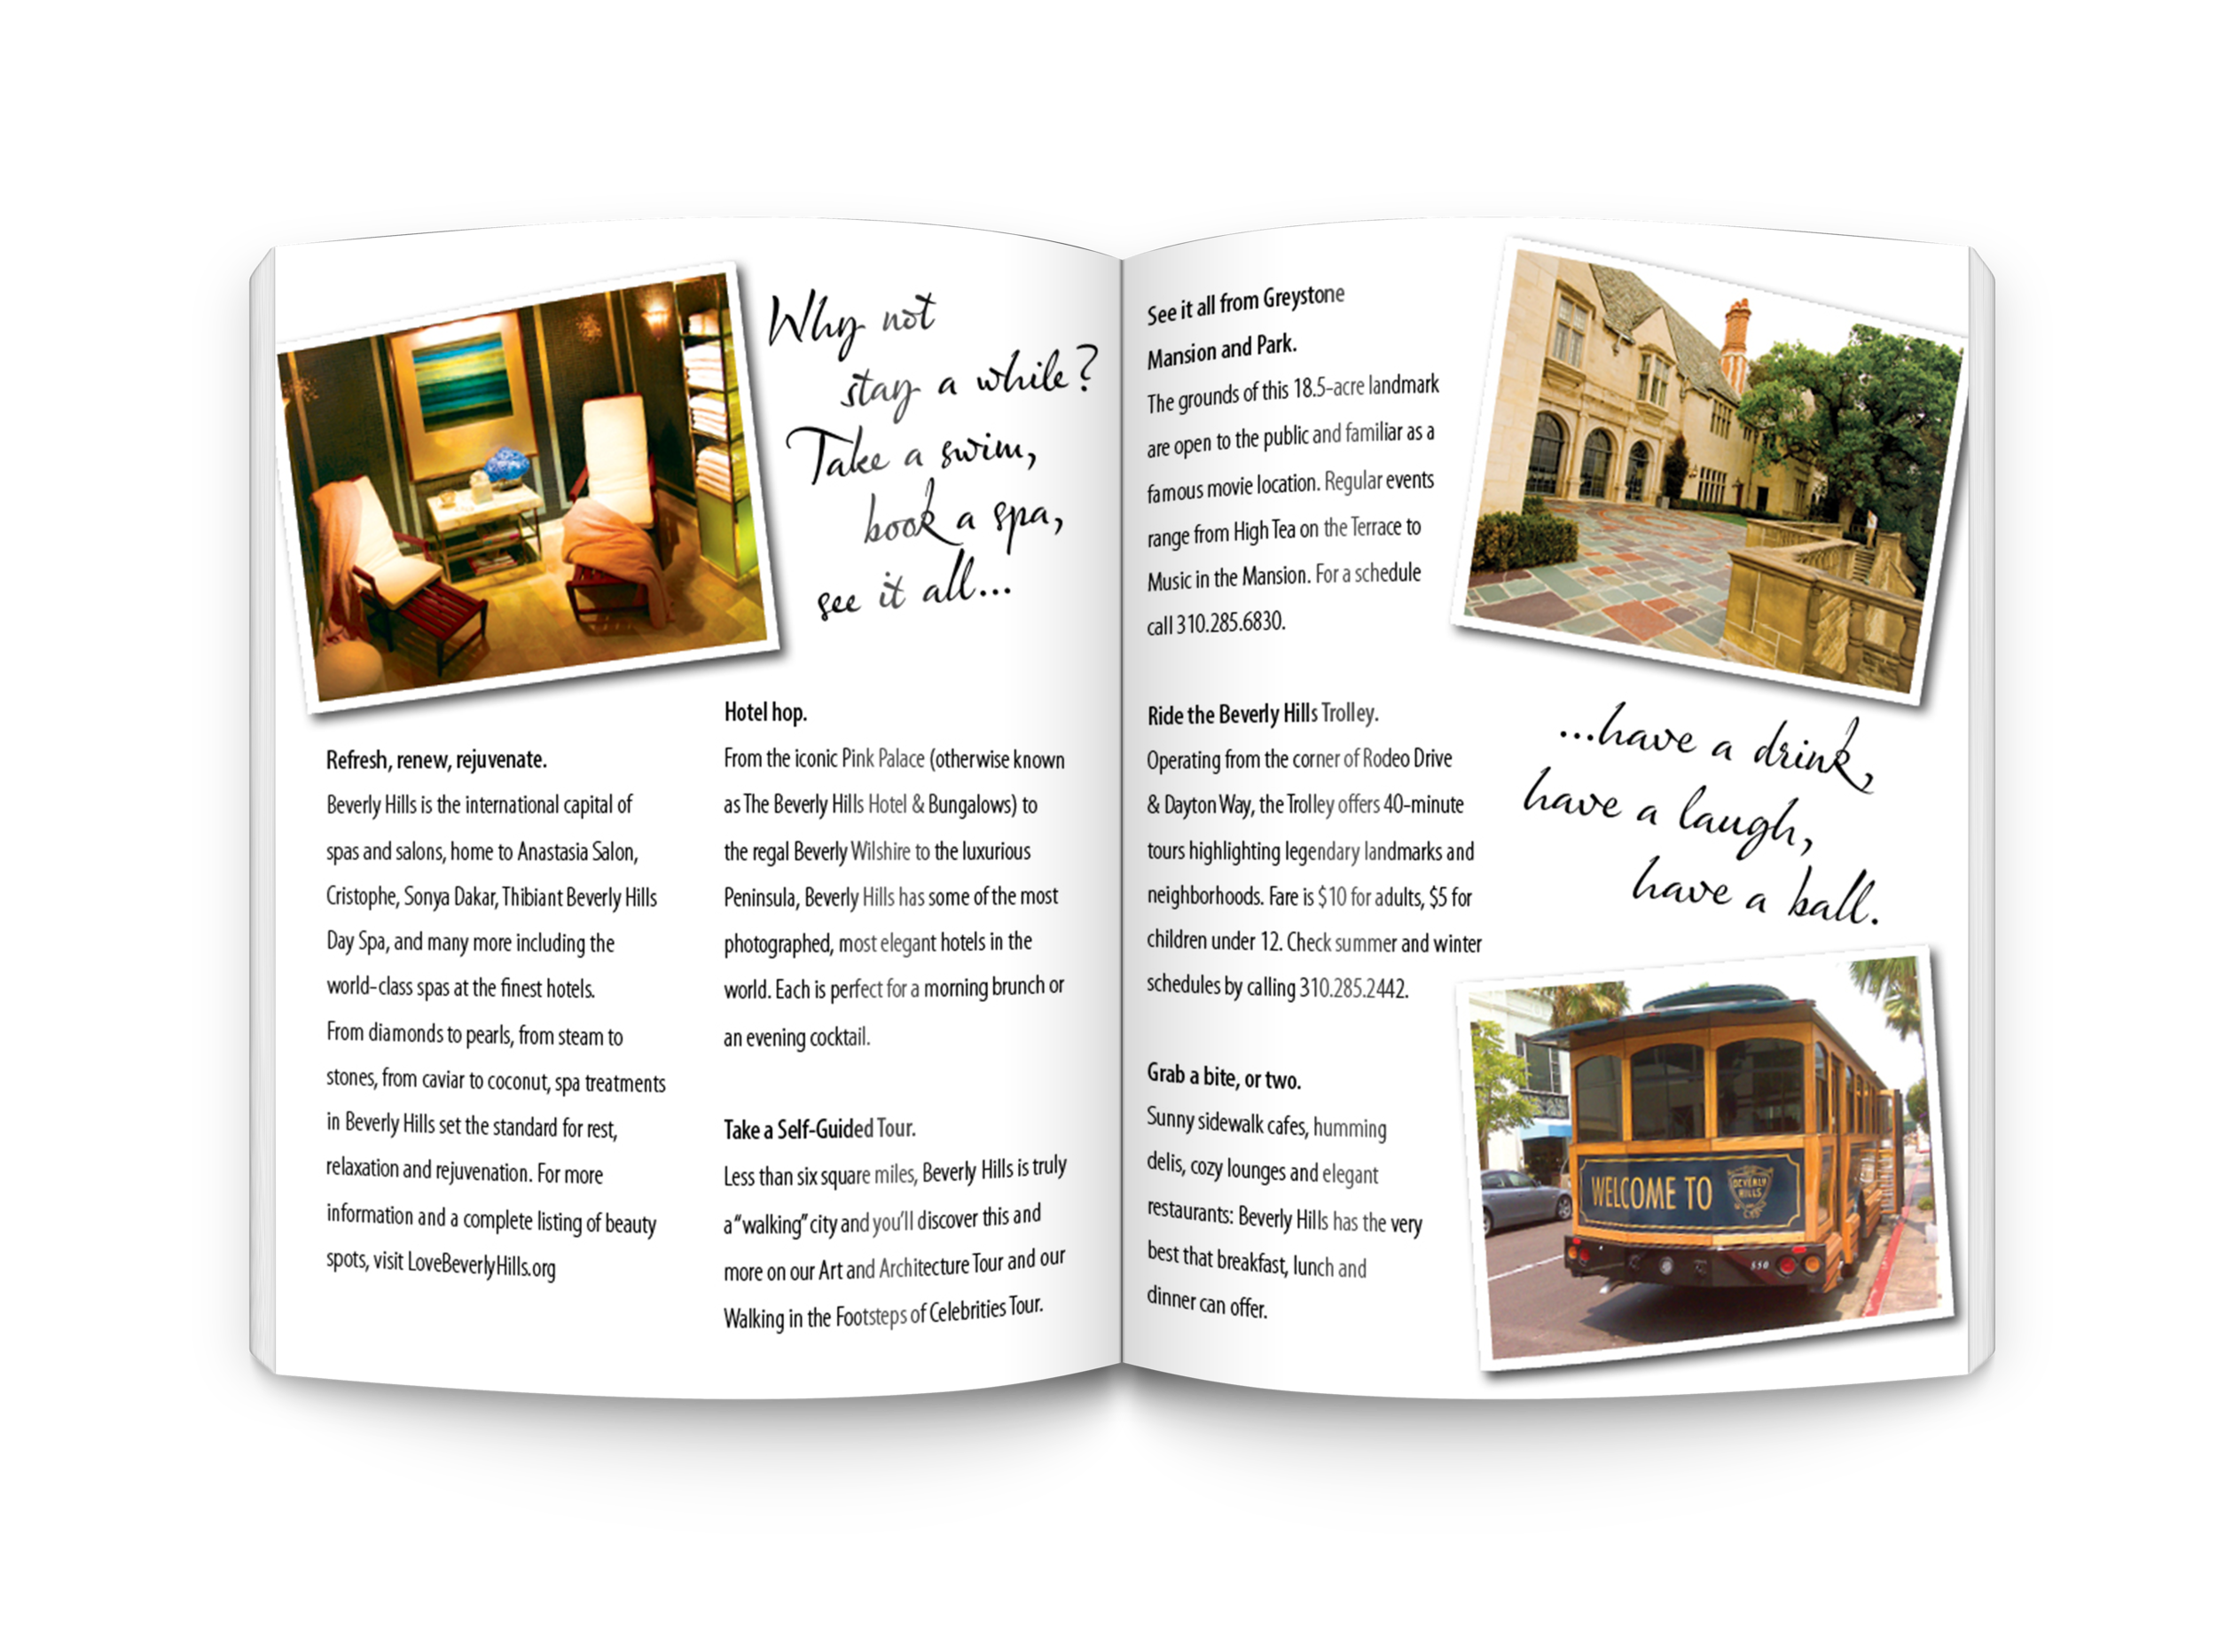 Why not
stay a while?
Take a swim,
book a spa,
see it all...
Refresh, renew, rejuvenate.
Beverly Hills is the international capital of
spas and salons, home to Anastasia Salon,
Cristophe, Sonya Dakar, Thibiant Beverly Hills
Day Spa, and many more including the
world-class spas at the finest hotels.
From diamonds to pearls, from steam to
stones, from caviar to coconut, spa treatments
in Beverly Hills set the standard for rest,
relaxation and rejuvenation. For more
information and a complete listing of beauty
spots, visit LoveBeverlyHills.org
Hotel hop.
From the iconic Pink Palace (otherwise known
as The Beverly Hills Hotel & Bungalows) to
the regal Beverly Wilshire to the luxurious
Peninsula, Beverly Hills has some of the most
photographed, most elegant hotels in the
world. Each is perfect for a morning brunch or
an evening cocktail.
Take a Self-Guided Tour.
Less than six square miles, Beverly Hills is truly
a “walking” city and you’ll discover this and
more on our Art and Architecture Tour and our
Walking in the Footsteps of Celebrities Tour.
See it all from Greystone
Mansion and Park.
The grounds of this 18.5-acre landmark
are open to the public and familiar as a
famous movie location. Regular events
range from High Tea on the Terrace to
Music in the Mansion. For a schedule
call 310.285.6830.
Ride the Beverly Hills Trolley.
Operating from the corner of Rodeo Drive
& Dayton Way, the Trolley offers 40-minute
tours highlighting legendary landmarks and
neighborhoods. Fare is $10 for adults, $5 for
children under 12. Check summer and winter
schedules by calling 310.285.2442.
Grab a bite, or two.
Sunny sidewalk cafes, humming
delis, cozy lounges and elegant
restaurants: Beverly Hills has the very
best that breakfast, lunch and
dinner can offer.
...have a drink,
have a laugh,
have a ball.
WELCOME TO
BEVERLY
HILLS
550